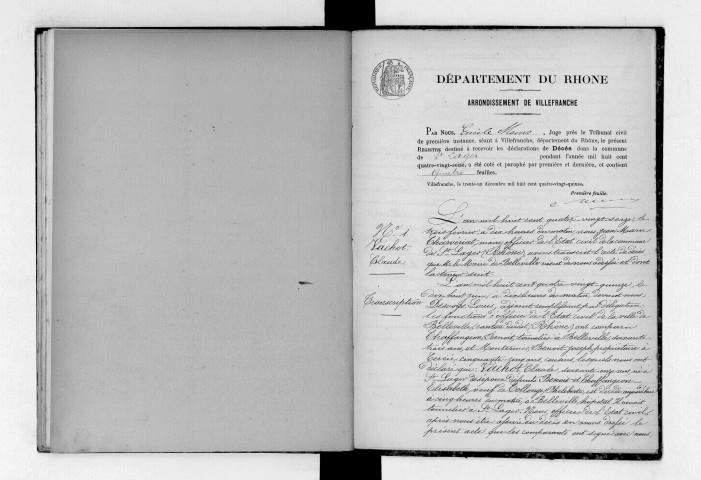 DÉPARTEMENT DU RHONE
ARRONDISSEMENT DE VILLEFRANCHE
PAR NOUS, Juge près le Tribunal civil
de première instance, séant à Villefranche, département du Rhône, le présent
REGISTRE destiné à recevoir les déclarations de Décès dans la commune
de St Lager pendant l'année mil huit cent
quatre-vingt-seize, a été coté et paraphé par première et dernière, et contient
quatre feuilles.
Villefranche, le trente-un décembre mil huit cent quatre-vingt-quinze.
Première feuille.
No 1
Vachot
Claude
Transcription
L'an mil huit cent quatre vingt seize le
trois février à dix heures du matin, nous
maire officier de l'Etat civil de la commune
de St Lager, (Rhône) avons transcrit l'acte de décès
que M. le Maire de Belleville vient de nous adresser et dont
la teneur suit.
L'an mil huit cent quatre vingt quinze le
dix huit juin, à heures du matin devant nous
Louis, adjoint remplissant par délégation
les fonctions d'officier de l'Etat civil de la ville de
Belleville, canton dudit, (Rhône) ont comparu
Chaffangeon, Benoit, tonnelier à Belleville, soixante
trois ans, et Benoit Joseph, propriétaire à
Cercié, cinquante cinq ans, voisins lesquels nous ont
déclaré que Vachot, Claude, soixante onze ans né à
St Lager, défunts Benoit et Chaffangeon
Elisabeth, veuf de Philiberte, est décédé aujourd'hui
à cinq heures du matin, à Belleville, hôpital
tonnelier à St Lager. Nous, officier de l'Etat civil,
après nous être assuré du décès en avons dressé le
présent acte que les comparants ont signé avec nous,